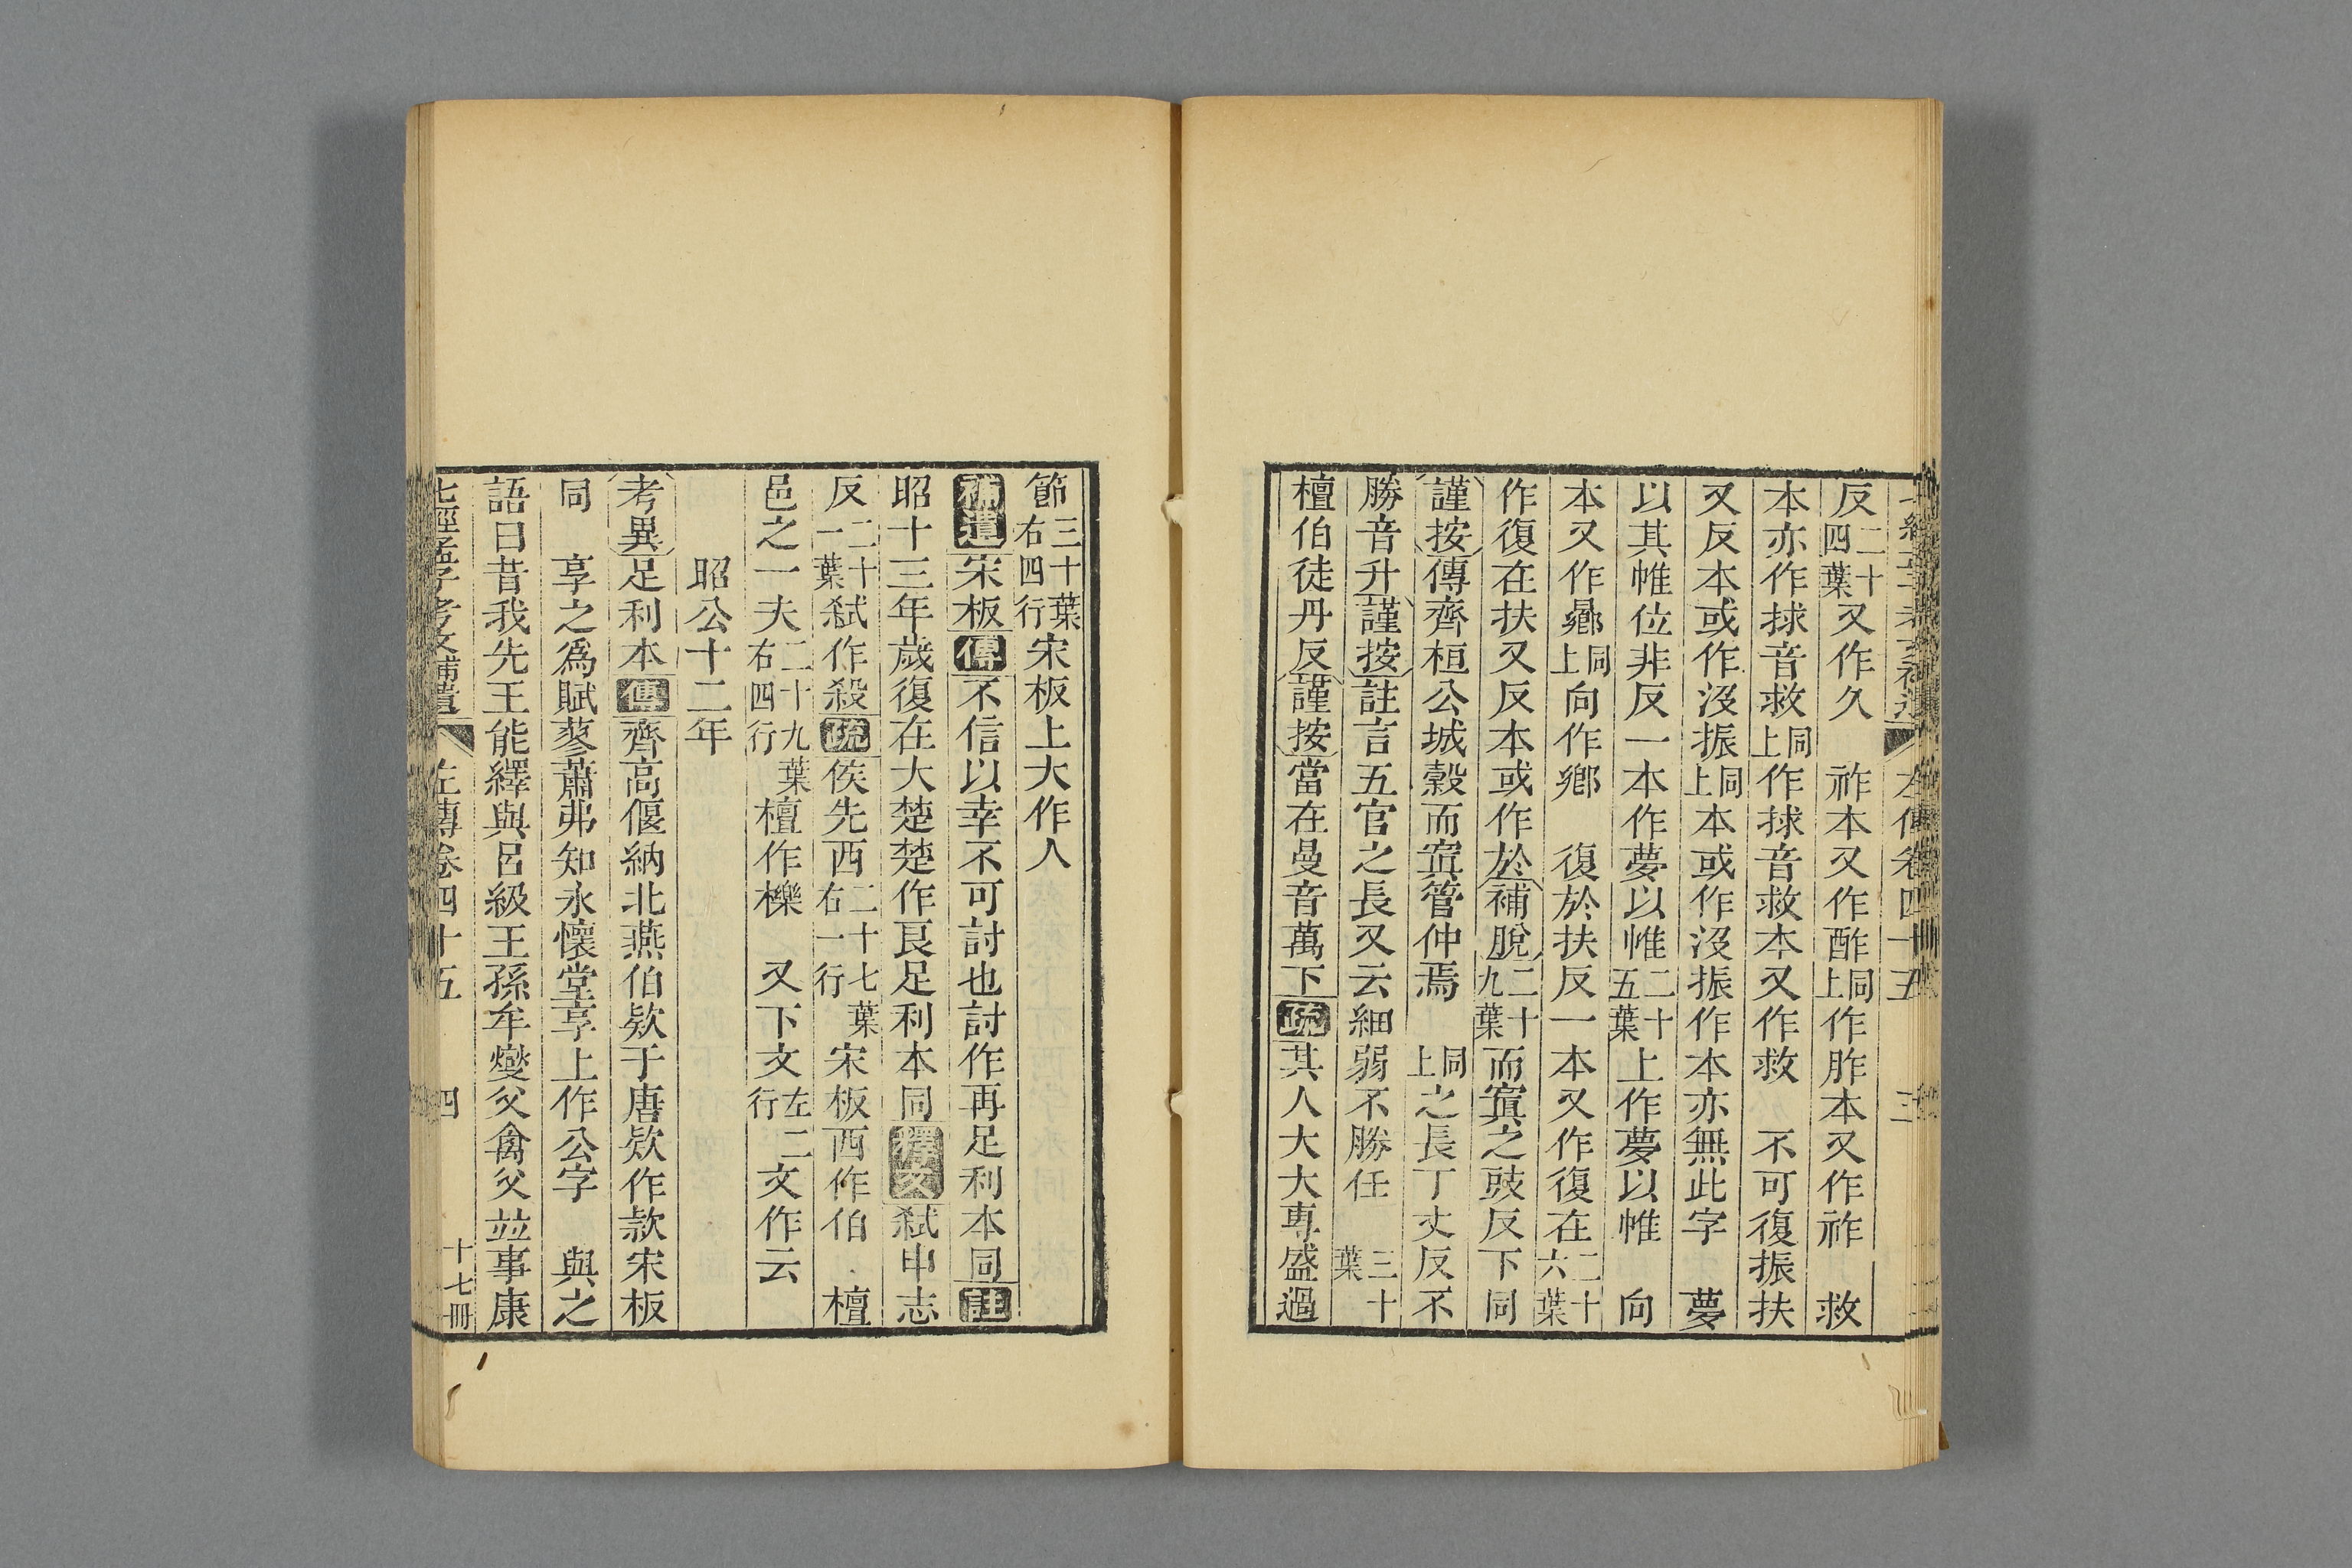 反二十四葉又作久　祚本又作酢同上作胙本又作祚　救
本亦作捄音救同上作捄音救本又作救　不可復振扶
又反本或作没振同上本或作没振作本亦無此字　夢
以其帷位非反一本作夢以帷二十五葉上作夢以帷　向
本又作曏同上向作鄉　復於扶反一本又作復在二十六葉
作復在扶又反本或作於補脫二十九葉而寘之豉反下同
謹按傳齊桓公城穀而寘管仲焉　同上之長丁丈反不
勝音升謹按註言五官之長又云細弱不勝任　三十葉
檀伯徒丹反謹按當在曼音萬下疏其人大大專盛過
節三十葉右四行宋板上大作人
補遺宋板傳不信以幸不可討也討作再足利本同註
昭十三年歲復在大楚楚作艮足利本同釋文弑申志
反二十一葉弑作殺疏侯先西二十七葉右一行宋板西作伯　檀
邑之一夫二十九葉右四行檀作櫟　又下文左二行文作云
昭公十二年
考異足利本傳齊高偃納北燕伯欵于唐欵作款宋板
同　享之爲賦蓼蕭弗知永懷堂享上作公字　與之
語曰昔我先王能繹與呂級王孫牟燮父禽父竝事康
七經孟子考文補遺　左傳卷四十五　四　十七冊